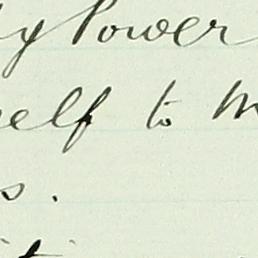 y Power
elf to m
s.